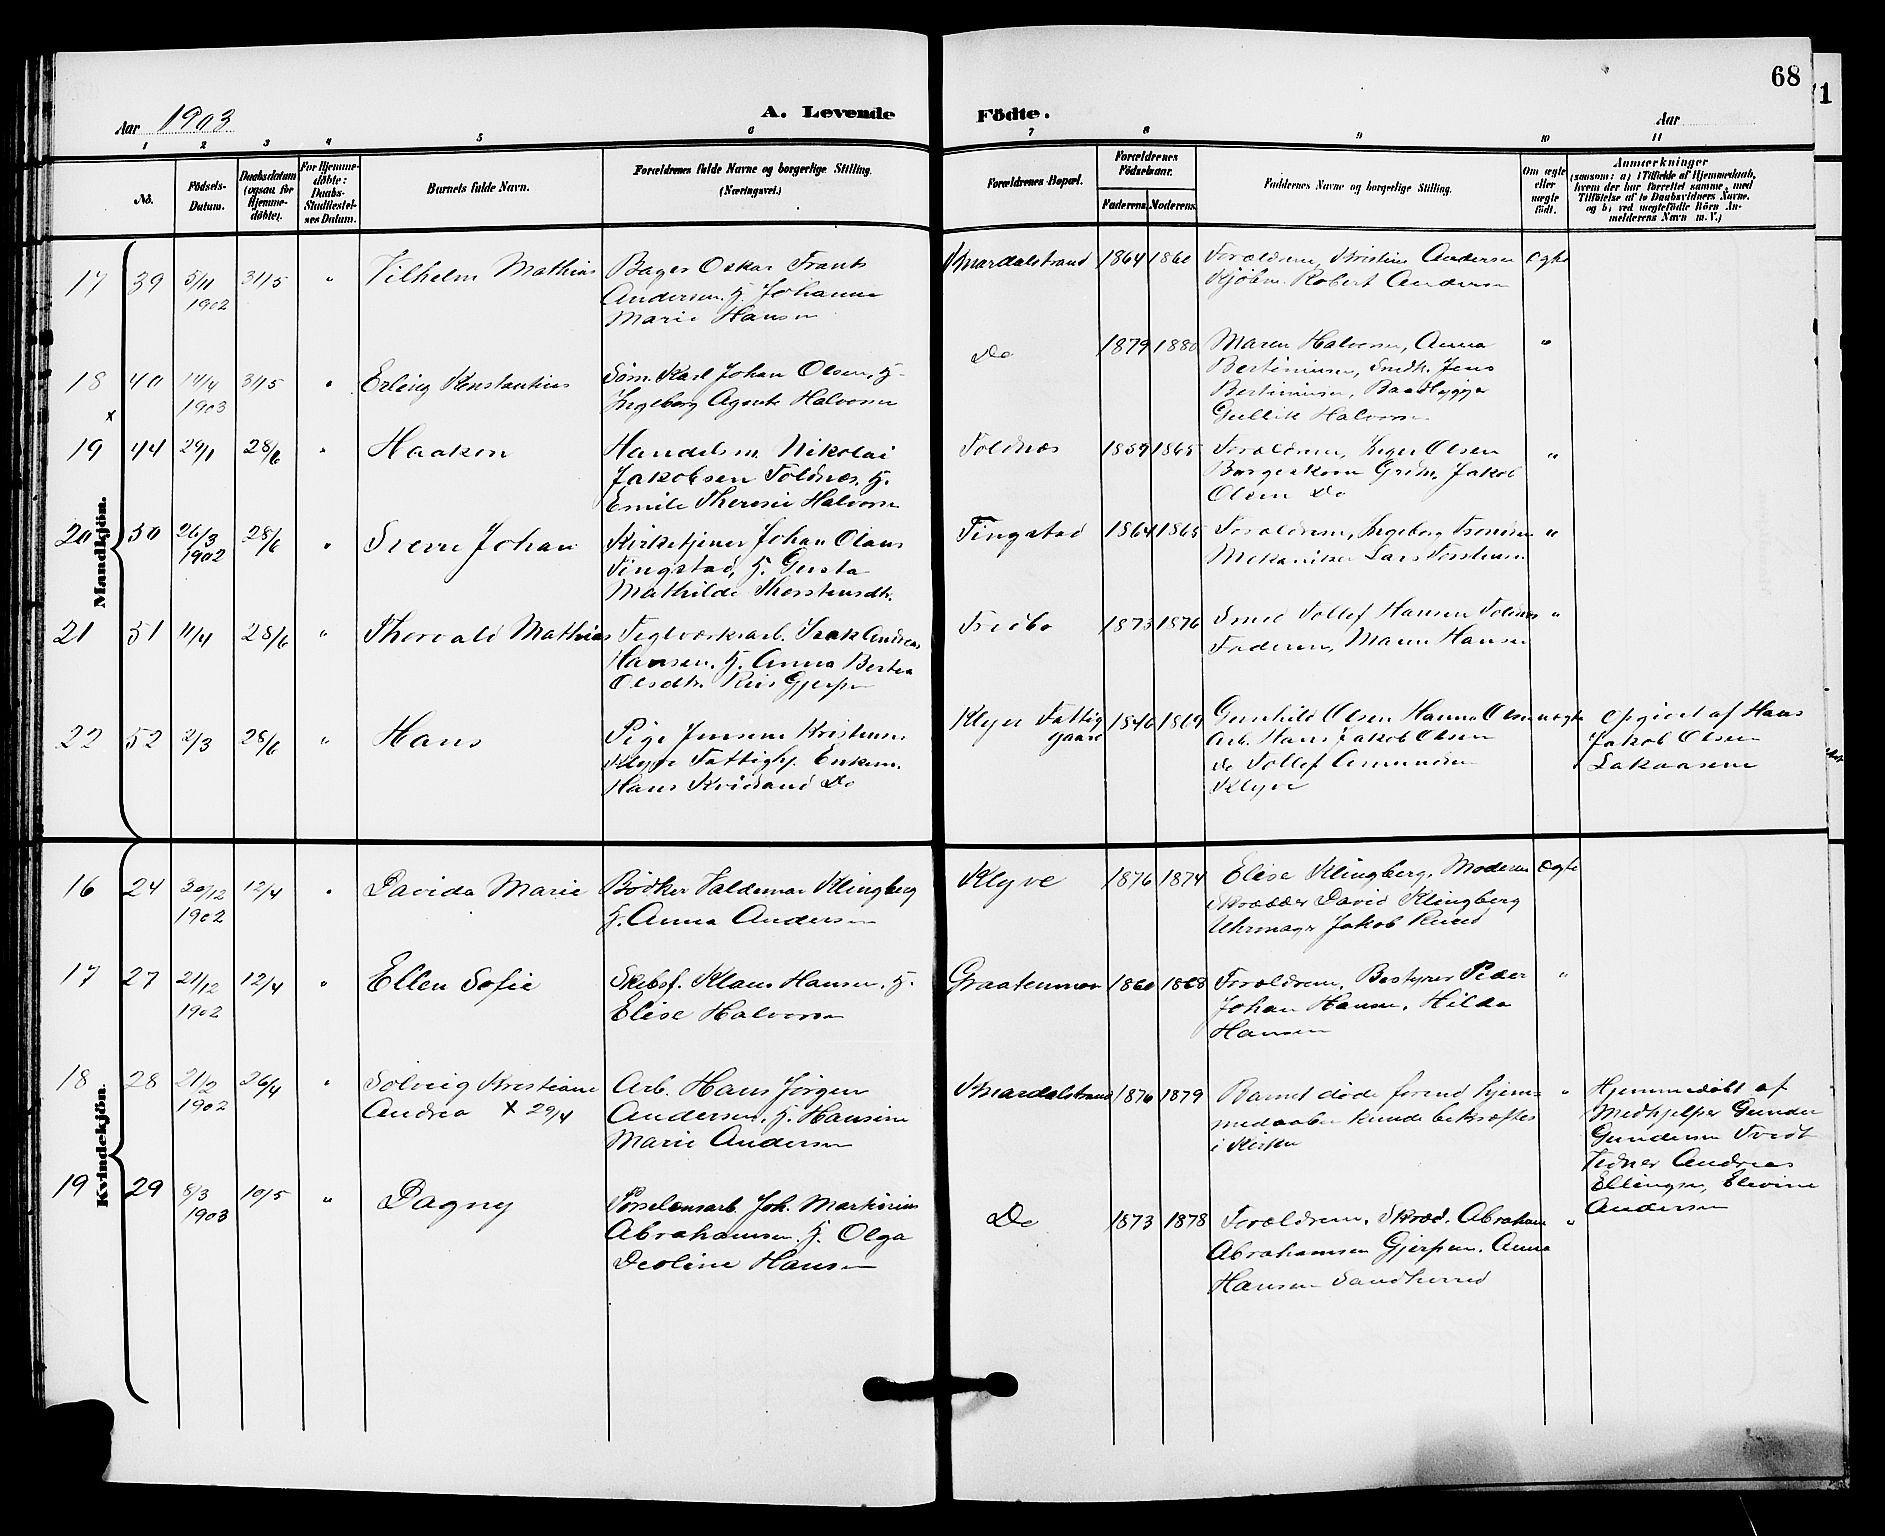 68
Aar 1903
A. Levende
Födte.
Aar
1 2 3 4 5 6 7 8 9 10 11
No.
Födsels-
Datum.
Daabsdatum
(ogsaa for
Hjemme-
döbte).
For Hjemme-
döbte:
Daabs-
Stadfæstel-
ses Datum.
Barnets fulde Navn.
Forældrenes fulde Navne og borgerlige Stilling.
(Næringsvei.)
Forældrenes Bopæl.
Forældrenes
Födselsaar.
Faderens. Moderens.
Faddernes Navne og borgerlige Stilling.
Om ægte
eller
uægte
født.
Anmærkninger
(saasom: a) i Tilfælde af Hjemmedaab,
hvem der har forrettet samme, med
Tilföielse af to Daabsvidners Navne.
og b) ved uægtefödte Börn An-
melderens Navn m. V.)
Mandkjön.
17 39 5/11 1902 31/5 " Vilhelm Mathias
Bager Oskar Frants
Andersen. H. Johanne
Marie Hansen
Knardalstrand 1864 1860
Forældrene, Kristine Andersen
Kjöbm. Robert Andersen
Ægte
18 40 14/4 1903 31/5 " Erling Konstantius
Söm. Karl Johan Olsen, H.
Ingeborg Agnete Halvorsen
Do 1879 1880
Maren Halvorsen, Anna
Bertiniusen, Smdk. Jens
Bertiniusen, Baadbygger
Gullik Halvorsen
"
x
19 44 29/1 28/6 " Haakon
Handelsm. Nikolai
Jakobsen Toldnæs. H.
Emilie Theresie Halvorsen
Toldnæs 1859 1865
Forældrene, Inger Olsen
Borgeskoven Grdm. Jakob
Olsen Do
"
20 50 26/3 1902 28/6 " Sverre Johan
Kirketjener Johan Olaus
Tingstad, H. Gusta
Mathilde Thorstensdt.
Tingstad 1864 1865
Forældrene, Ingeborg
Mekaniker Lars Torstensen
"
21 51 11/4 28/6 " Thorvald Mathias
Teglværksarb. Isak Andreas
Hansen. H. Anna Bertea
Olsdt. Riis Gjerpen
1873 1876
Smed Tollef Hansen Tolnæs
Faderen, Maren Hansen
"
22 52 2/3 28/6 " Hans
Pige Jensine Kristensen
Klyve Fattighj. Enkem.
Hans Kvisand Do
Klyve Fattig
gaard
1846 1869
Gunhild Olsen Hanna Olsen
Arb. Hans Jakob Olsen
Do Tollef Amundsen
Klyve
uægte
Opgivet af Hans
Jakob Olsen
Lakaasene
Kvindekjön.
16 24 30/12 1902 12/4 " Davida Marie
Bödker Valdemar Klingberg
H. Anna Andersen
Klyve 1876 1874
Elise Klingberg, Moderen
Skrædder David Klingberg
Uhrmager Jakob Ruud
Ægte
17 27 21/12 1902 12/4 " Ellen Sofie
Skibsf. Klaus Hansen. H.
Elise Halvorsen
Graatenmoen 1860 1868
Forældrene, Bestyrer Peder
Johan Hansen, Hilda
Hansen
"
18 28 21/2 1902 26/4 " Solveig Kristiane
Andrea x 29/4
Arb. Hans Jörgen
Andersen. H. Hansine
Marie Andersen
Knardalstrand 1876 1879
Barnet döde forend hjem-
medaaben kunde bekræftes
i Kirken
"
Hjemmedöbt af
Medhjelper Gunder
Gundersen Tvedt
Vidner Andreas
Ellingsen, Elevine
Andersen
19 29 8/3 1903 10/5 " Dagny
Porselænsarb. Joh. Markinius
Abrahamsen. H. Olga
Deoline Hansen
Do 1873 1878
Forældrene. Skræd. Abraham
Abrahamsen Gjerpen. Anna
Hansen Sandherred
"